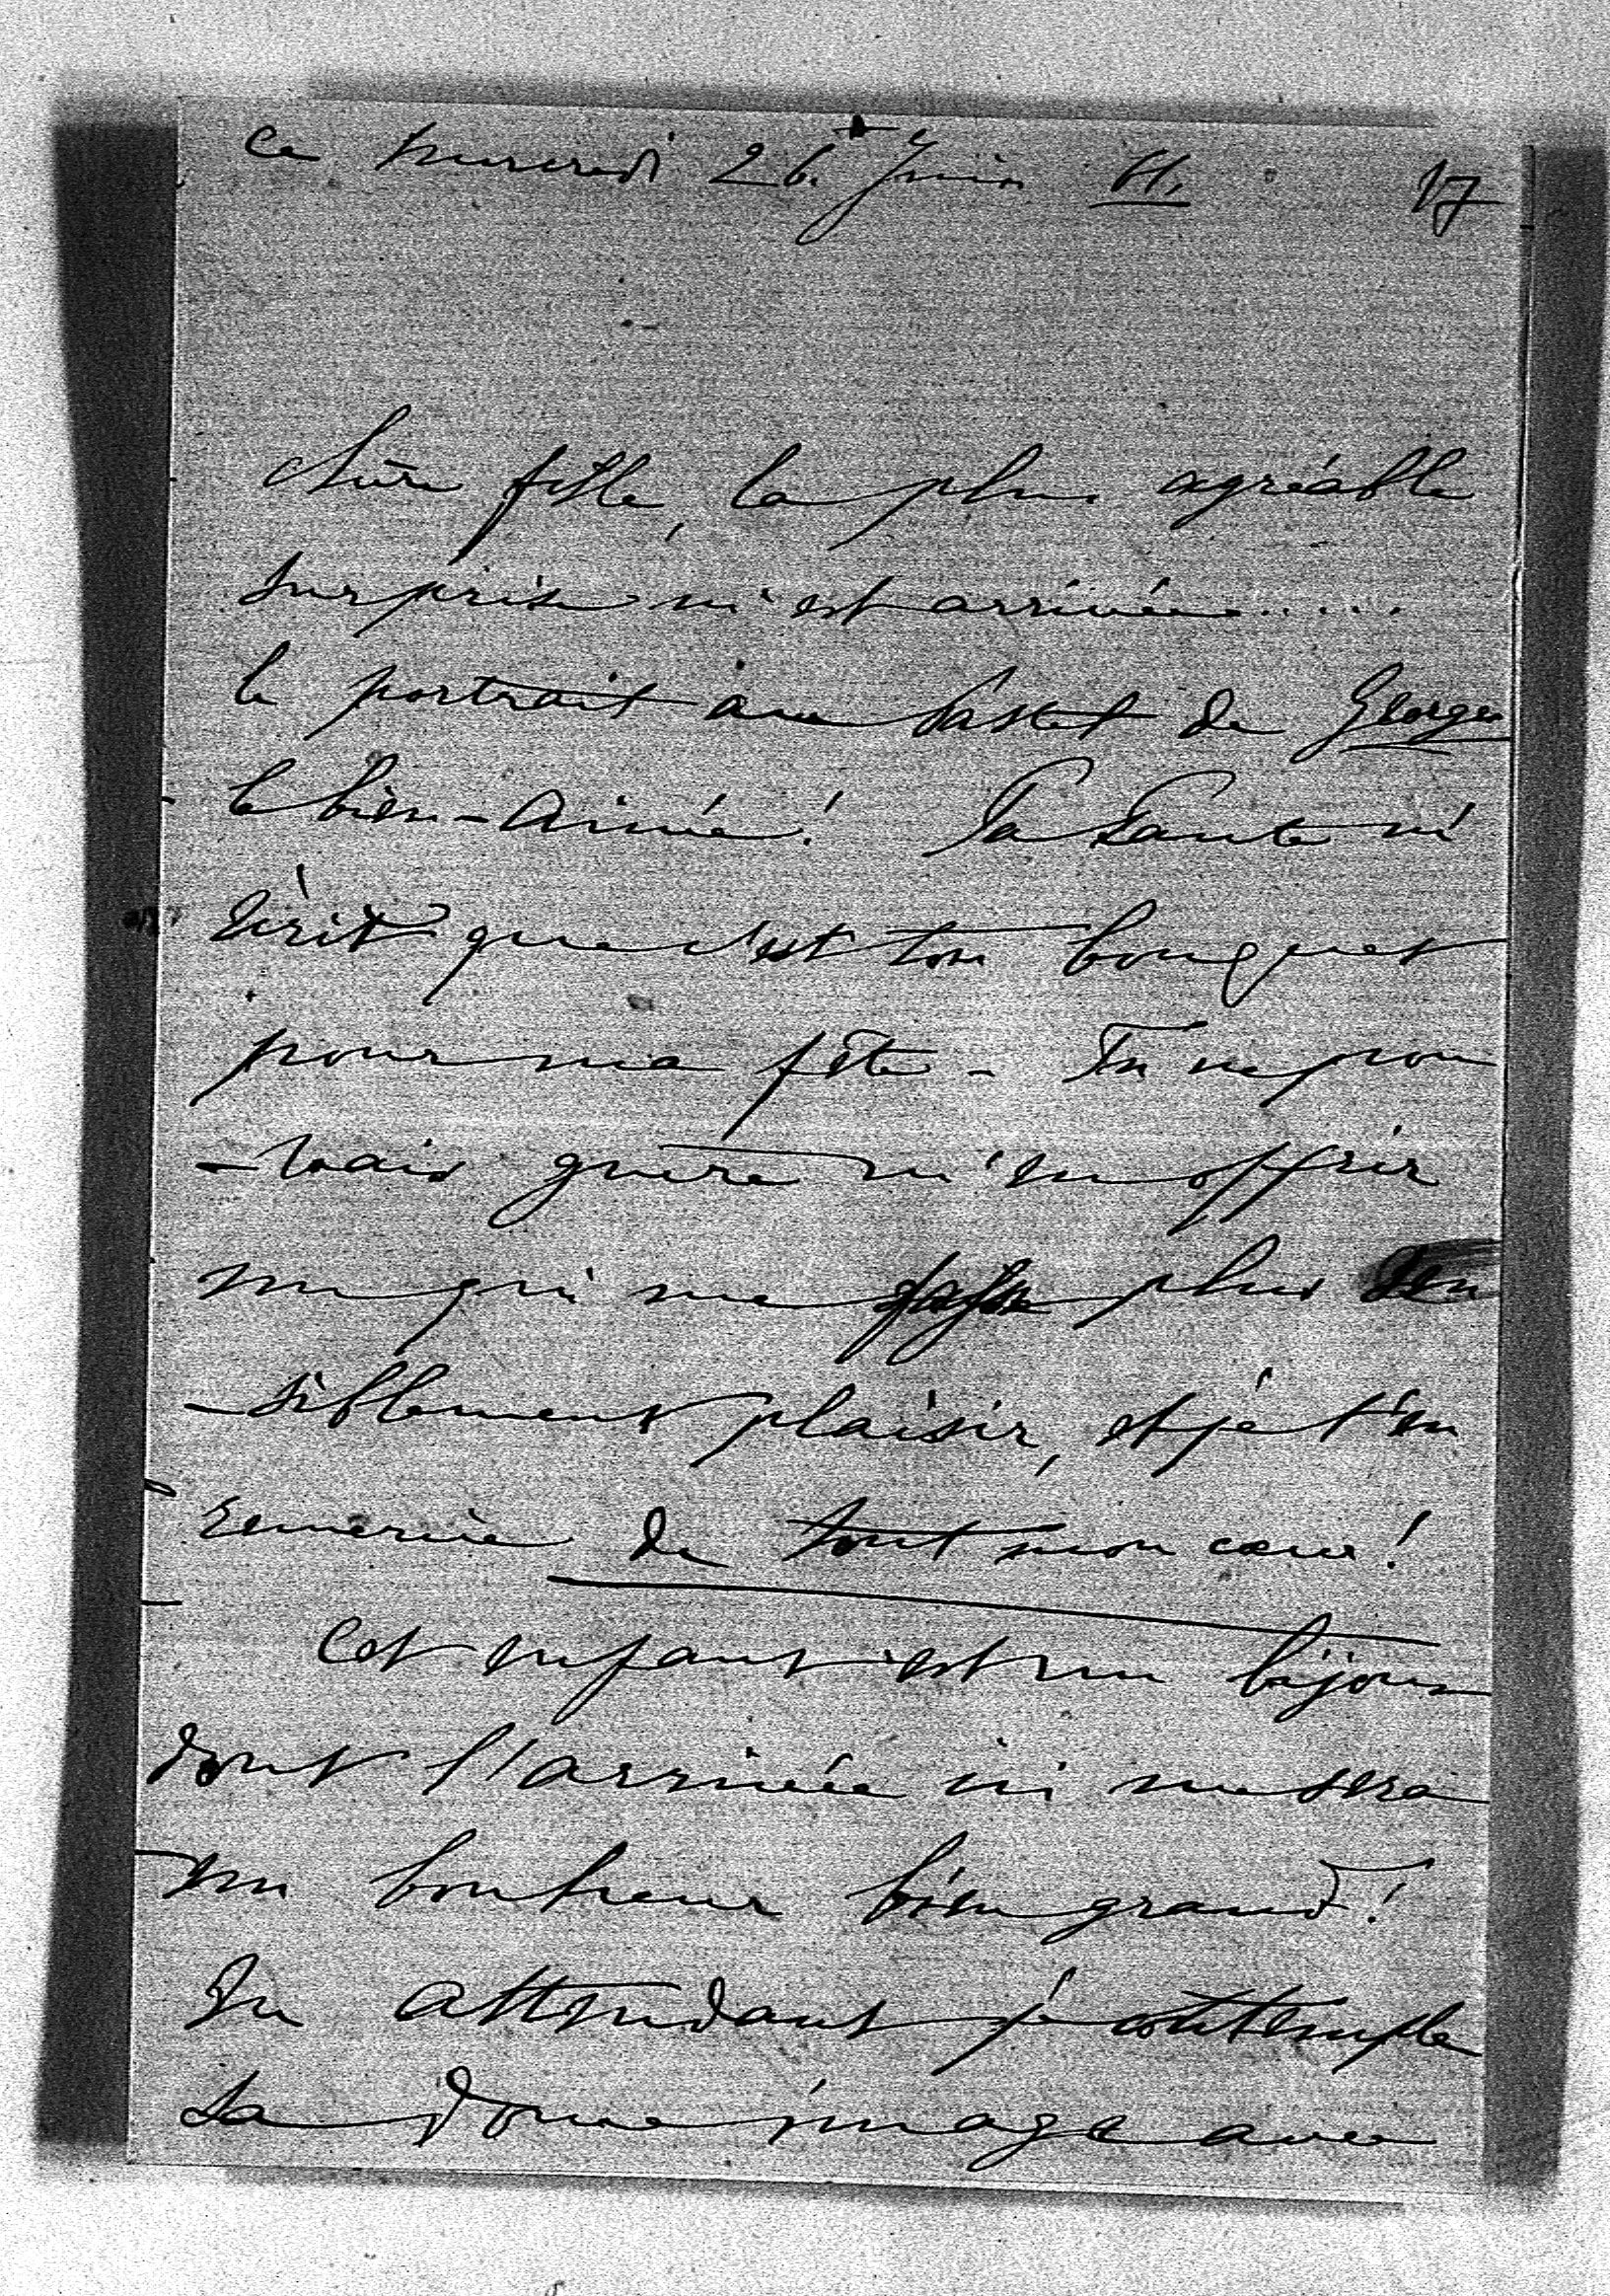 ce mercredi 26. Juin 61. 17
Chère fille, la plus agréable
surprise m'est arrivée.....
le portrait au pastel de Georges
le bien-aimé! Ta tante m'
écrit que c'est ton bouquet
pour ma fête - Tu ne pou
-vais guère m'en offrir
un qui me fasse plus sen
-siblement plaisir, et je t'en
remercie de tout mon cœur!
Cet enfant est un bijou
dont l'arrivée ici me sera
un bonheur bien grand!
En attendant je contemple
sa douce image avec